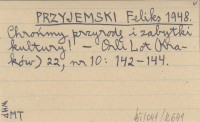 PRZYJEMSKI Feliks 1948.
Chrońmy przyrodę i zabytki
kultury! – Orli Lot (Kra-
ków) 22, nr 10: 142–144.
MT